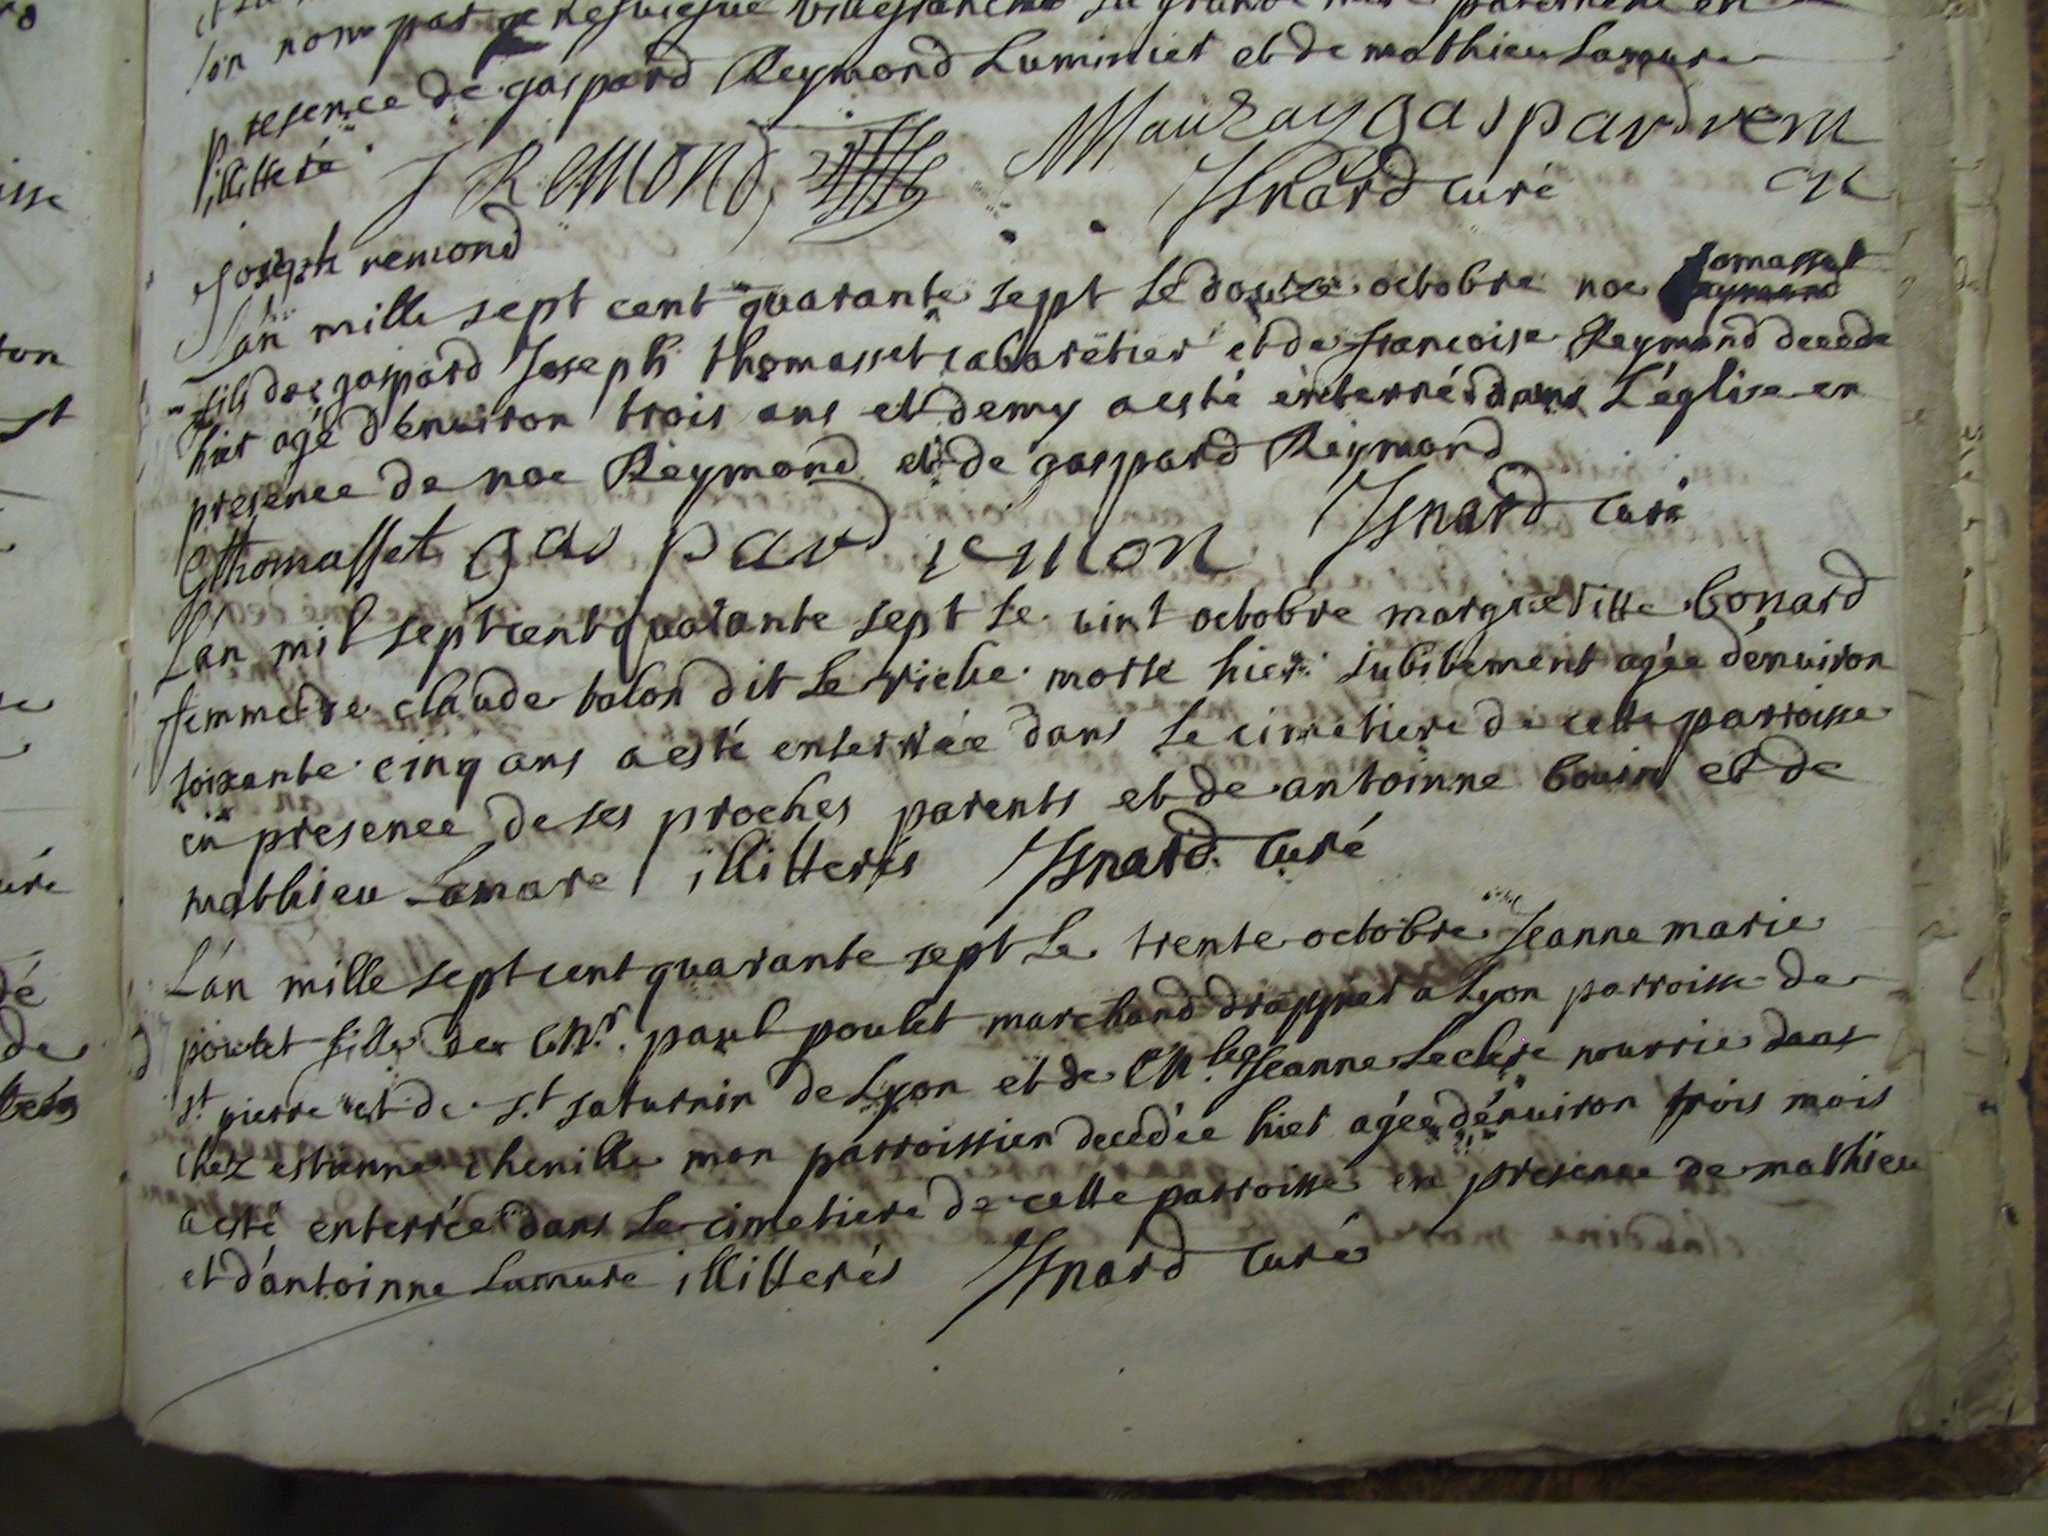 presence de gaspard Reymond Luminier et de mathieu Lamure
illitteré J REMOND Mauzay gaspard rem
Isnard curé on
Joseph remond
L'an mille sept cent quarante sept Le douze octobre noe tomasset
fils de gaspard Joseph thomasset cabaretier et de francoise Reymond decede
hier agé d'enuiron trois ans et demy a esté enterré dans L'église en
presence de noe Reymond et de gaspard Reymond
Gthomasset gaspard remon Isnard curé
L'an mil sept cent quarante sept Le uint octobre margueritte bonard
femme de claude balon dit Le riche morte hier subitement agée d'enuiron
soixante cinq ans a esté enterrée dans Le cimetiere de cette parroisse
en presence de ses proches parents et de antoinne bouin et de
mathieu Lamure illitterés Isnard curé
L'an mille sept cent quarante sept Le trente octobre Jeanne marie
poulet fille de Mr. paul poulet marchand drappier a Lyon parroisse de
st pierre et de st saturnin de Lyon et de Jeanne Leclere nourrie dans
chez estienne chenille mon parroissien decedée hier agée d'enuiron trois mois
a esté enterrée dans Le cimetiere de cette parroisse en presence de mathieu
et d'antoinne Lamure illitterés Isnard curé